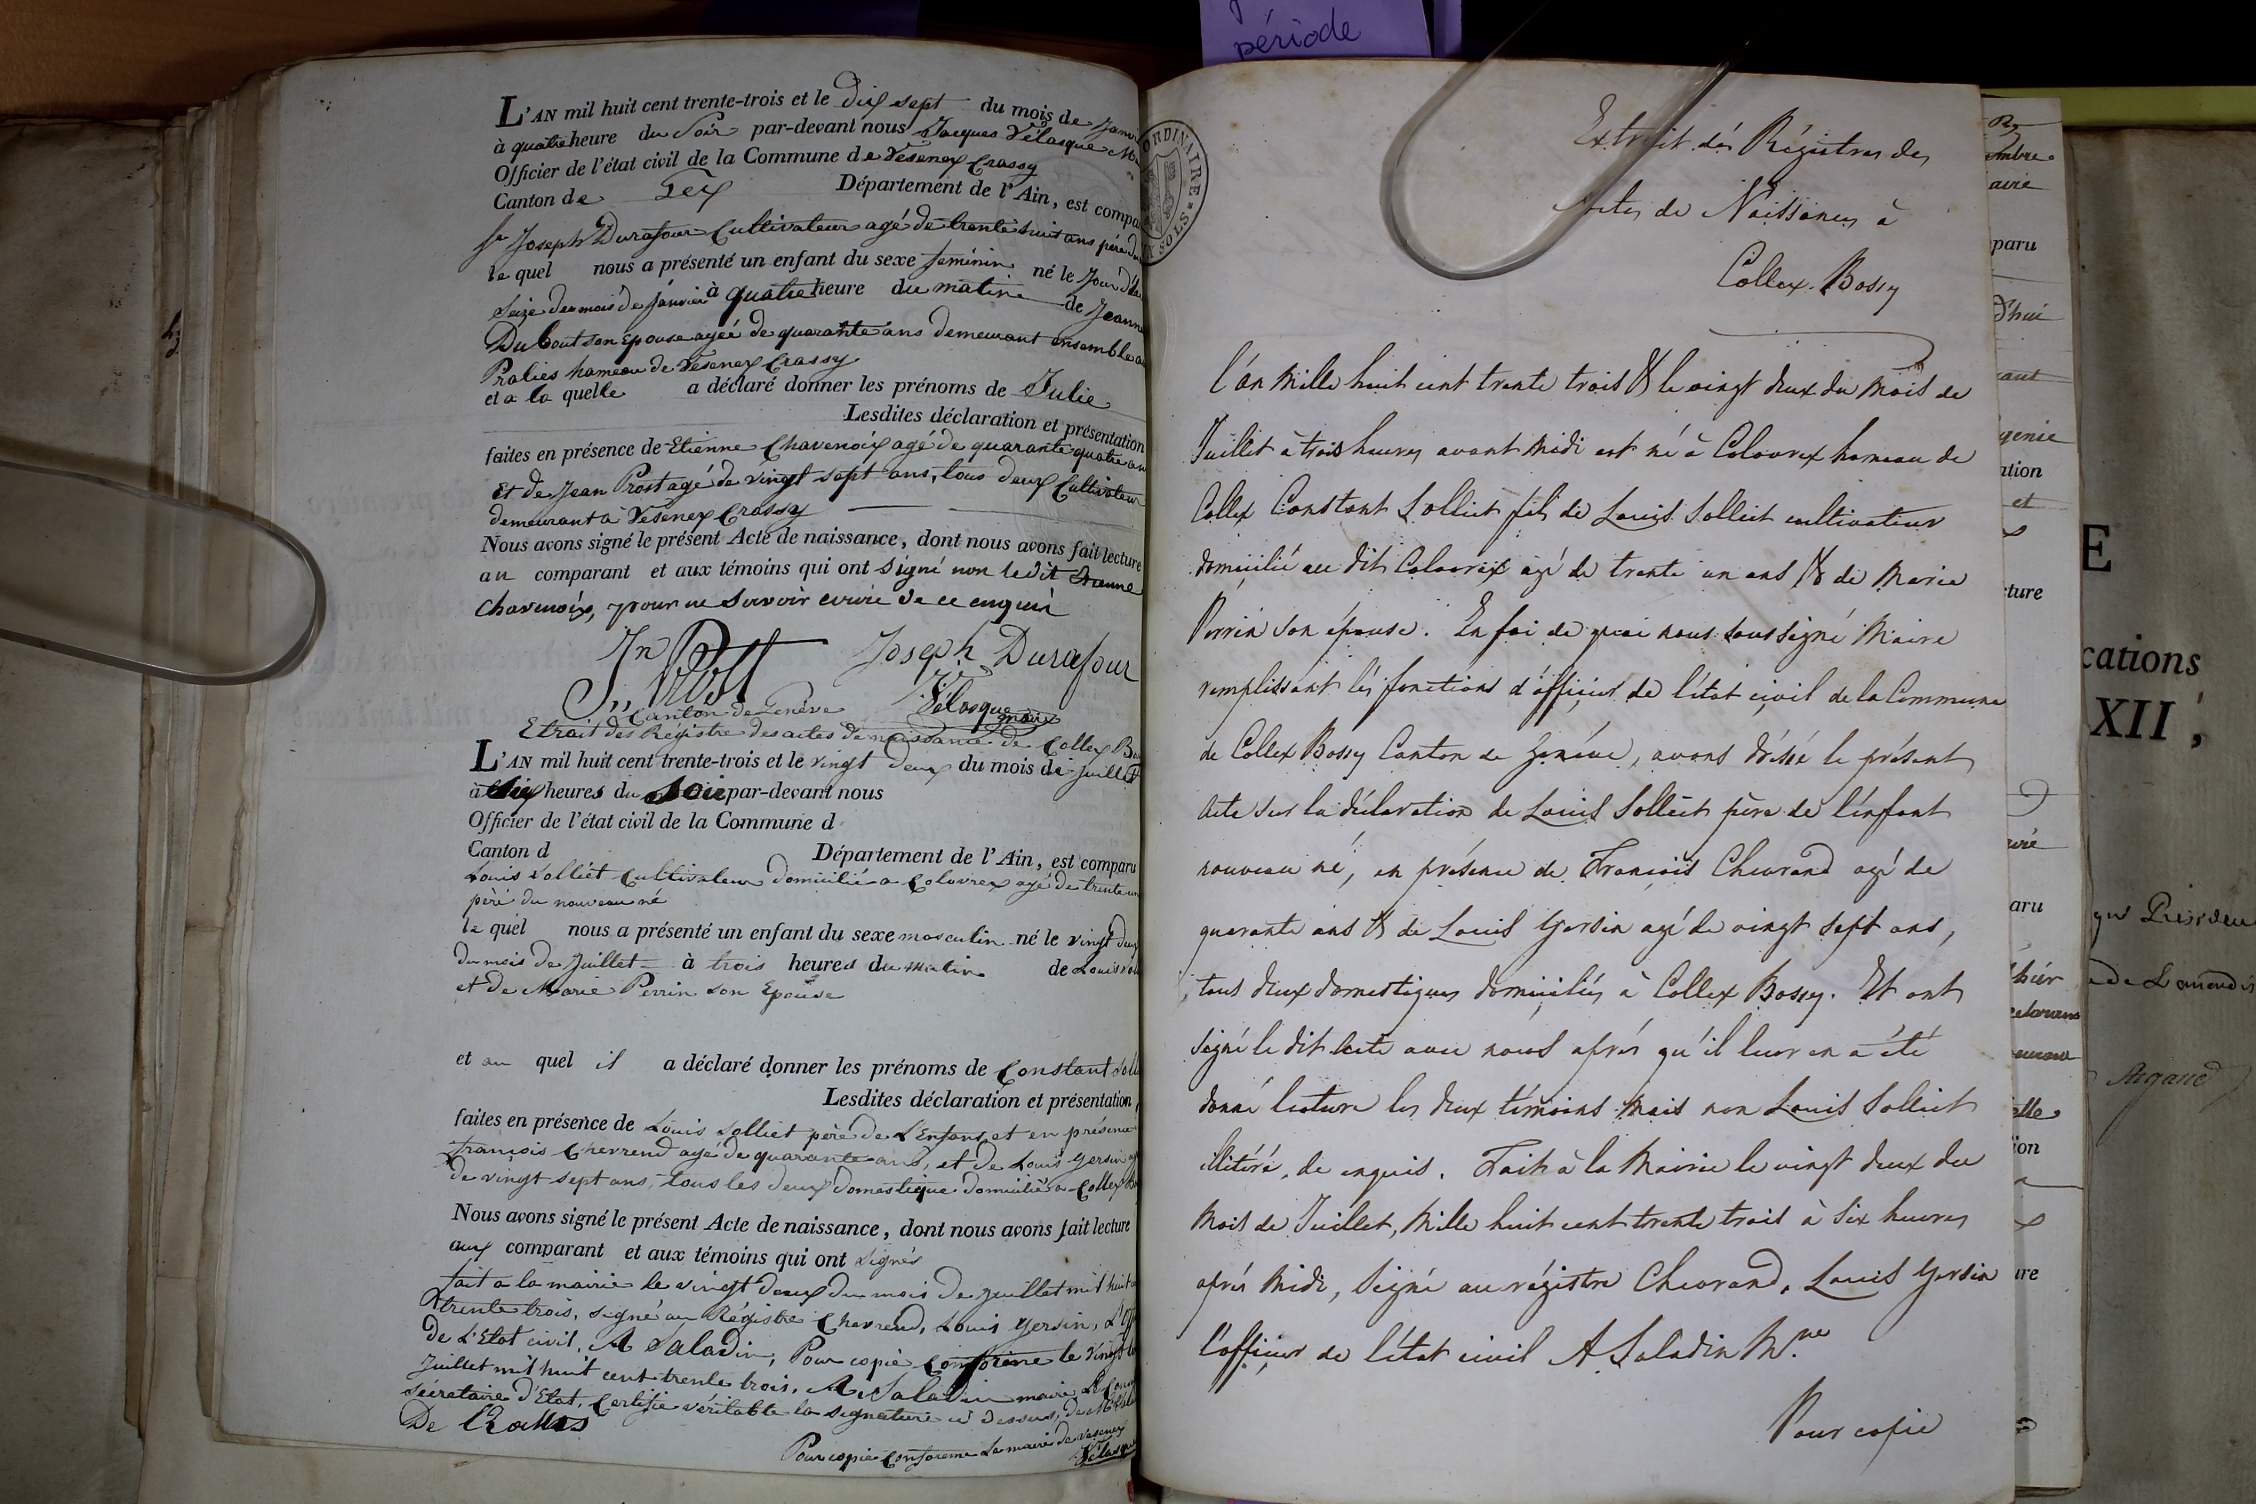 période
L'AN mil huit cent trente-trois et le dix sept du mois de Janv
à quatre heure du Soir par-devant nous Jacques Vélasque M
Officier de l'état civil de la Commune de Vesenex Crassy
Canton de Gex Département de l'Ain, est compa
Sr Joseph Durafour Cultivateur agé de trente huit ans père d
le quel nous a présenté un enfant du sexe féminin né le Jour d'
Seize du mois de janvier à quatre heure du matin de Jeanne
Dubout son Epouse agée de quarante ans demeurant ensemble a
Pralies hameau de Vesenex Crassy
et a la quelle a déclaré donner les prénoms de Julie
Lesdites déclaration et présentation
faites en présence de Etienne Chavenoix agé de quarante quatre an
Et de Jean Prost agé de vingt sept ans, tous deux Cultivateur
demeurant à Vesenex Crassy
Nous avons signé le présent Acte de naissance, dont nous avons fait lecture
au comparant et aux témoins qui ont signé non ledit Etienne
Chavenoix, pour ne savoir ecrire de ce enquis
Jn Prost Joseph Durafour
Vélasque maire
Canton de Genève
Etrait des Registre des actes de naissance de Collex Bo
L'AN mil huit cent trente-trois et le vingt deux du mois de juillet
à Six heures du Soir par-devant nous
Officier de l'état civil de la Commune d
Canton d Département de l'Ain, est comparu
Louis Solliet Cultivateur domicilié a Colovrex agé de trente un
père du nouveau né
le quel nous a présenté un enfant du sexe masculin né le vingt deux
du mois de Juillet à trois heures du matin de Louis Sol
et de Marie Perrin son Epouse
et au quel il a déclaré donner les prénoms de Constant Soll
Lesdites déclaration et présentation,
faites en présence de Louis Solliet père de L'Enfant et en présence
françois Chevrend agé de quarante ans, et de Louis Yersin a
de vingt sept ans, tous les deux domestique domicilié a Collex B
Nous avons signé le présent Acte de naissance, dont nous avons fait lecture
aux comparant et aux témoins qui ont signés
fait a la mairie le vingt deux du mois de juillet mil huit c
trente trois, signé au Régistre Chevrend, Louis Yersin, L'off
de L'Etat civil, A Saladin, Pour copie Conforme le vingt
Juillet mil huit cent trente trois. A. Saladin maire
Sécretaire d'Etat, Certifie véritable la signature ci dessus, de M
De
Pour copie Conforme Le maire de Vesenex
Vélasque
Extrait dés Régistres des
Actes de Naissances à
Collex-Bossy
l'an Mille huit cent trente trois & le vingt deux du Mois de
Juillet à trois heures avant Midi est né à Colovrex hameau de
Collex Constant Solliet fils de Louis Solliet cultivateur
domicilié au dit Colovrex agé de trente un ans & de Marie
Perrin son épouse. En foi de quoi nous soussigné Maire
remplissant lés fonctions d'officier de l'état civil de la Commune
de Collex Bossy Canton de Genéve, avons dréssé le présent
Acte sur la déclaration de Louis Solliet père de l'enfant
nouveau né, en présence de François Chevrand agé de
quarante ans & de Louis Yersin agé de vingt sept ans,
tous deux domestiques domiciliés à Collex Bossy. Et ont
signé le dit Acte avec nous aprés qu'il leur en a été
donné lecture les deux témoins mais non Louis Solliet
illitéré, de enquis. Fait à la Mairie le vingt deux du
Mois de Juillet, Mille huit cent trente trois à six heures
aprés Midi, Signé au régistre Chevrand, Louis Yersin
l'officier de l'état civil A Saladin Mre
Pour copie
mbre
aire
paru
d'hui
génie
ation
et
cture
aru
ion
E
cations
XII,
Argand